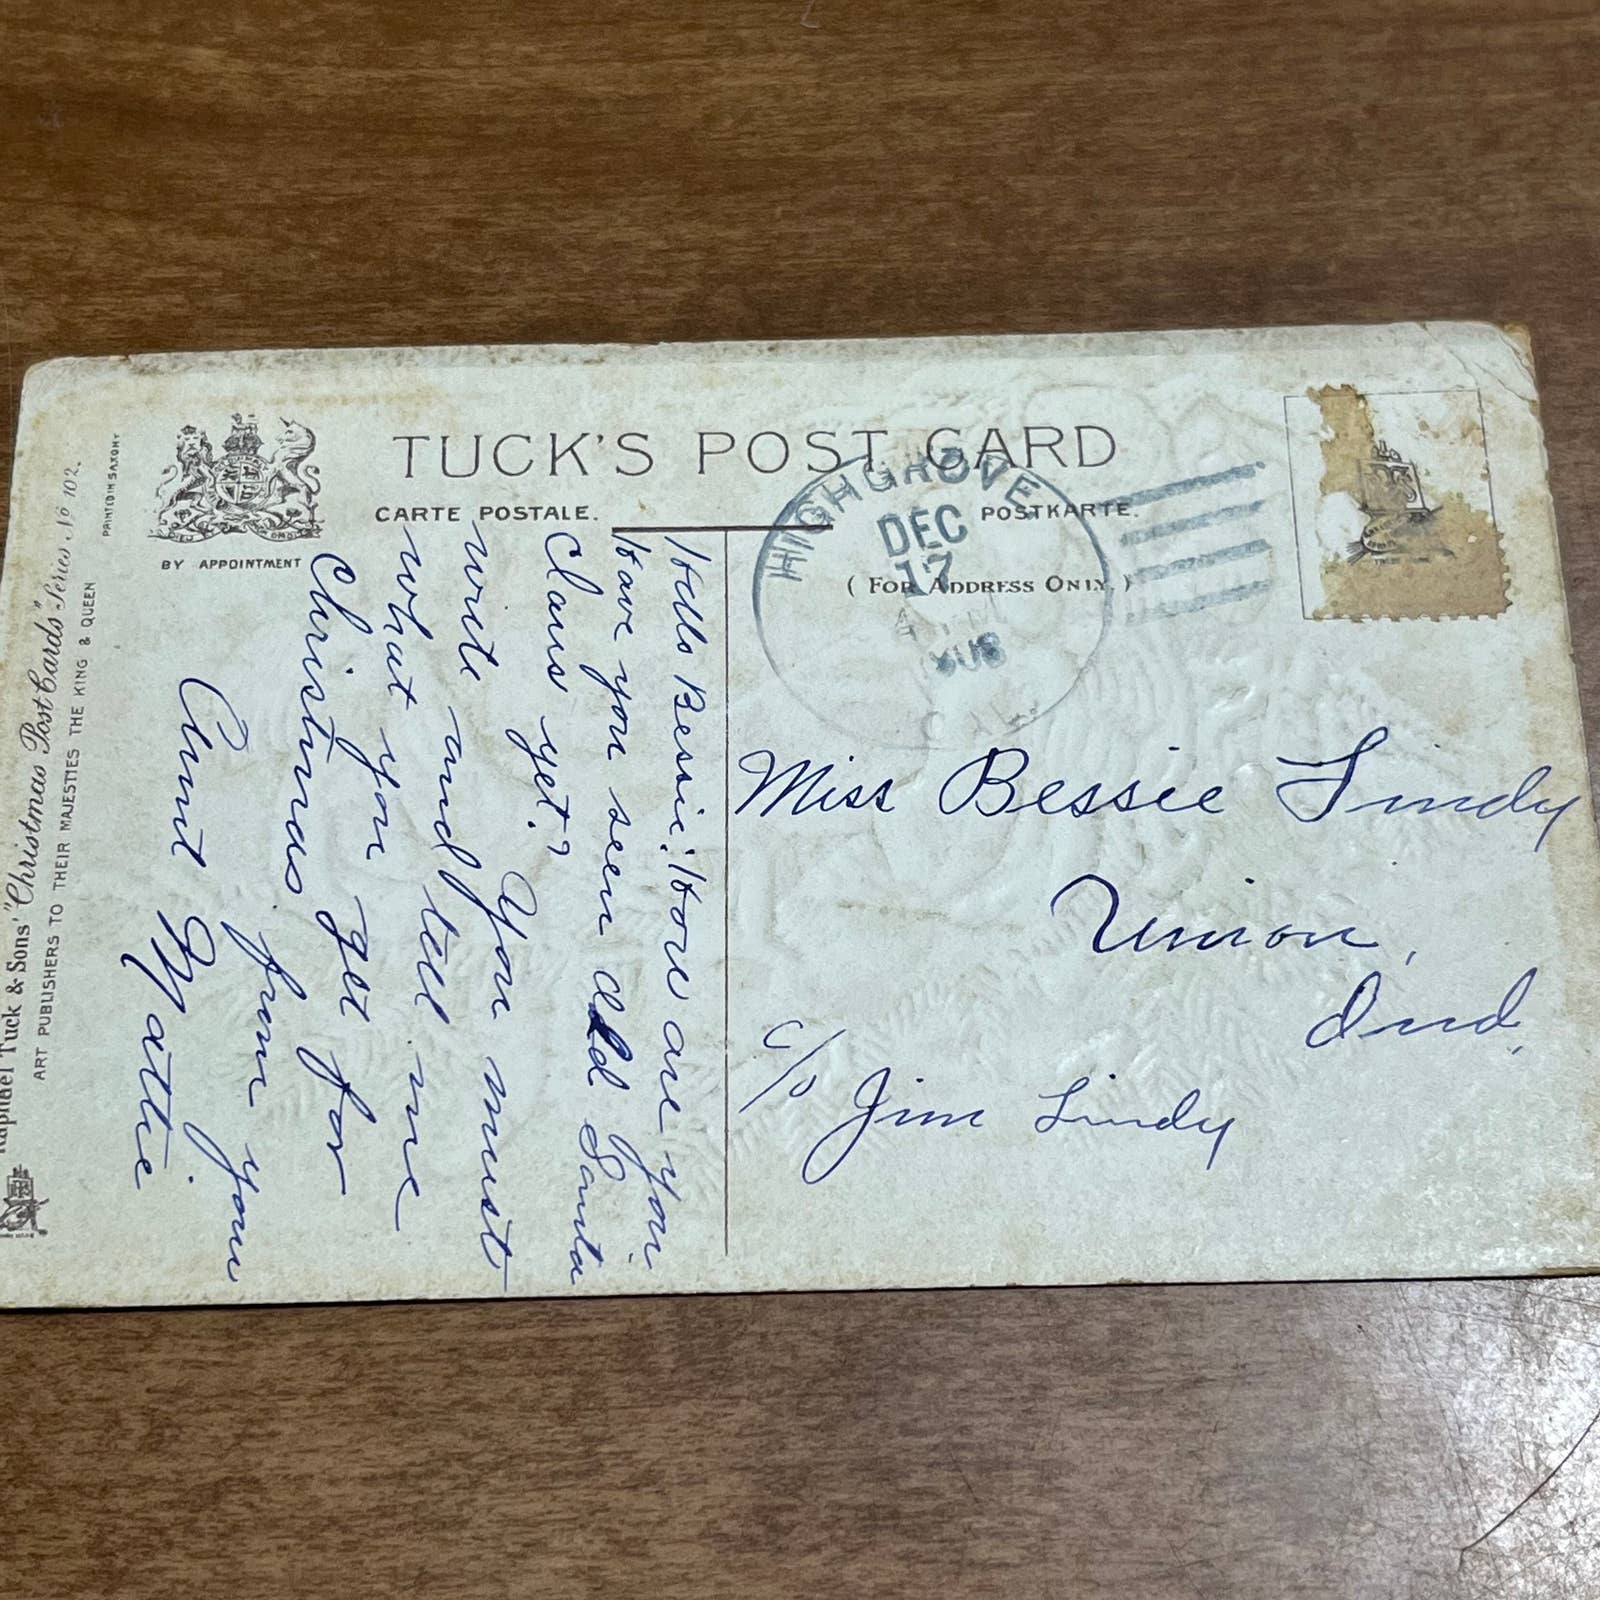 TUCK'S POST CARD
CARTE POSTALE.
POSTKARTE.
(FOR ADDRESS ONLY.)
BY APPOINTMENT
PRINTED IN SAXONY
Raphael Tuck & Sons' "Christmas Post Cards" Series No 102.
ART PUBLISHERS TO THEIR MAJESTIES THE KING & QUEEN
HIGHGROVE
DEC
17
CAL.
Hello Bessie: How are you.
Have you seen old Santa
Claus yet? You must
write and tell me
what you get for
Christmas from your
Aunt Mattie
Miss Bessie Lindy
Union,
Ind.
c/o Jim Lindy